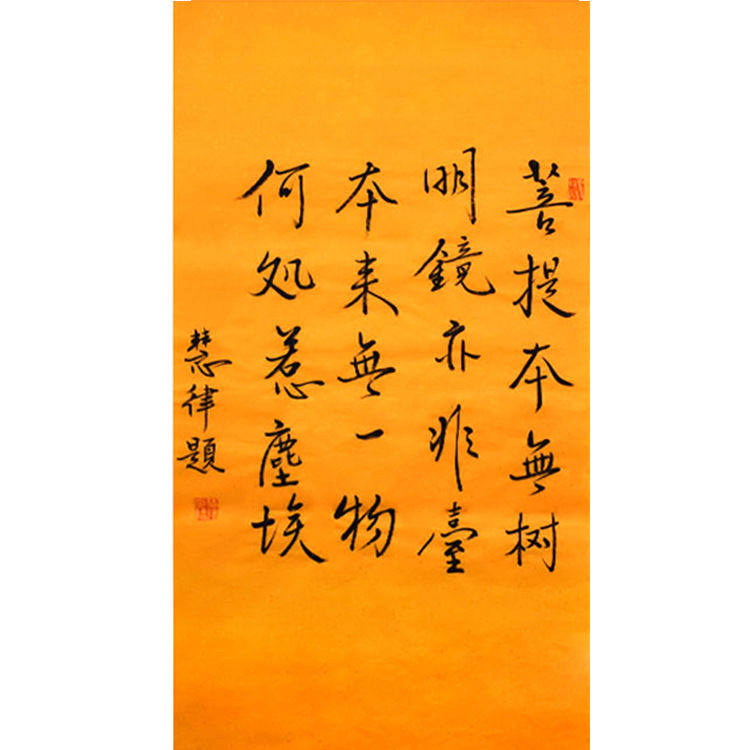 菩提本無树
明鏡亦非臺
本来無一物
何処惹塵埃
慧律題